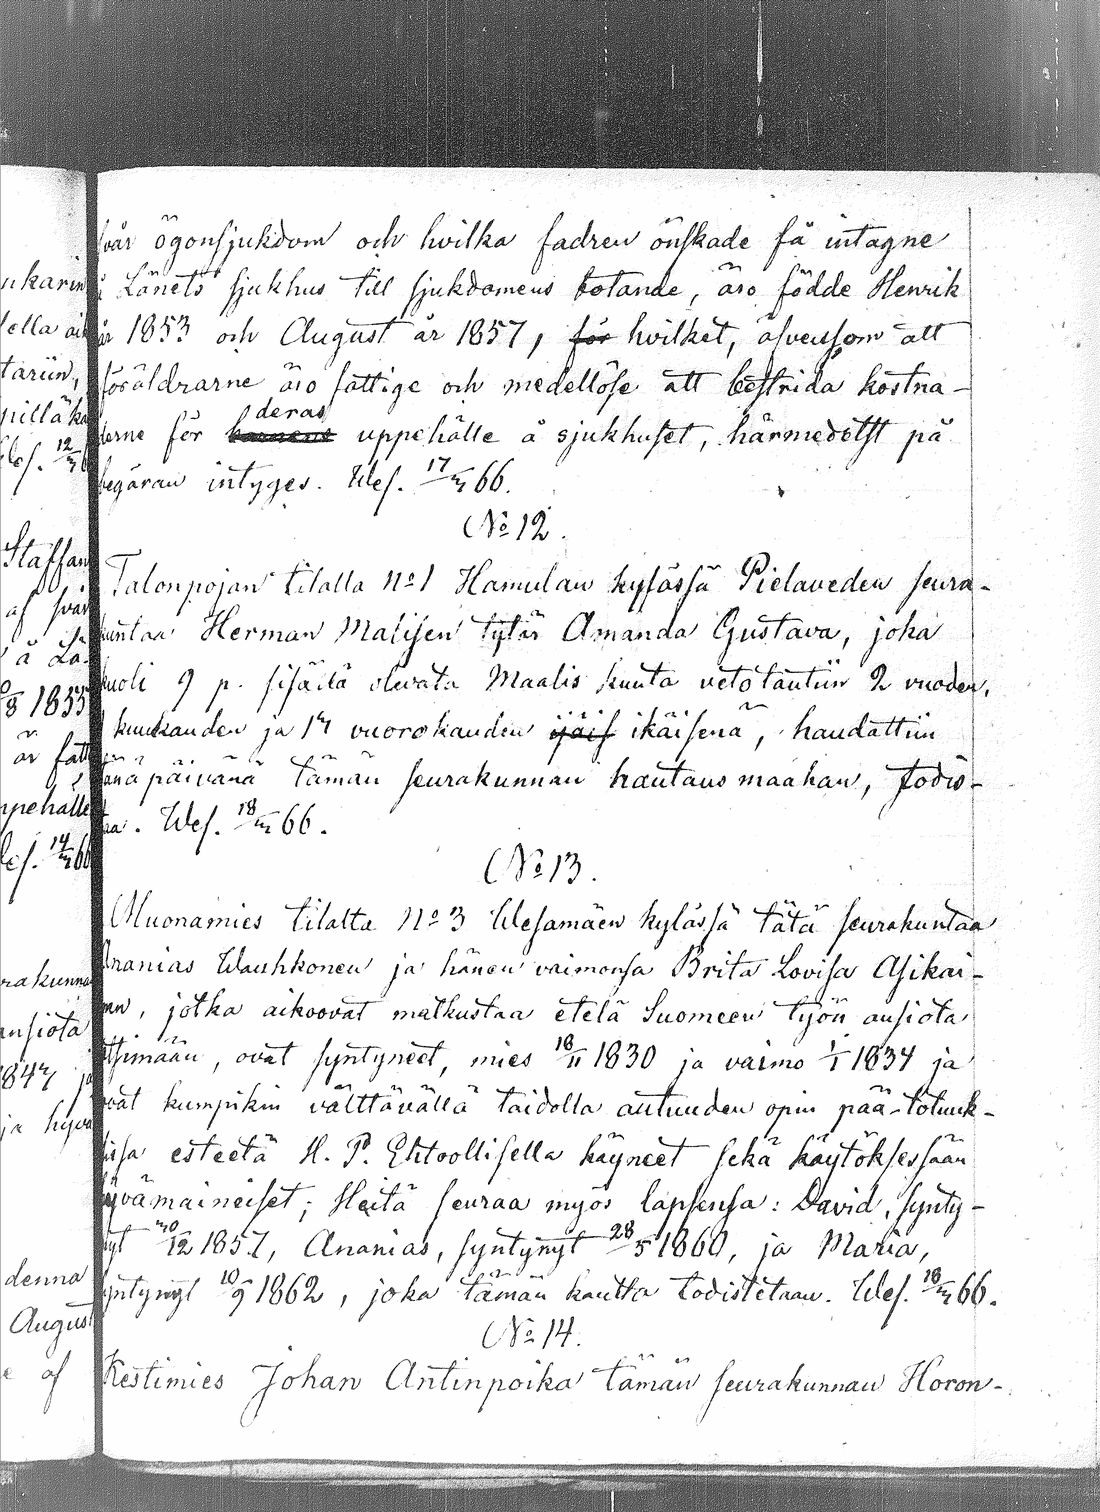 svår ögonsjukdom och hvilka fadren önskade få intagne
å Länets sjukhus till sjukdomens botande, äro födde Henrik
år 1853 och August år 1857, för hvilket, äfvensom att
föräldrarne äro fattige och medellöse att bestrida kostna-
derne för barnens deras uppehälle å sjukhuset, härmedelst på
begäran intyges. Wes. 17/3 66.
No 12.
Talonpojan tilalla No 1 Hamulan kylässä Pielaveden seura-
kuntaa Herman Malisen tytär Amanda Gustava, joka
kuoli 9 p. sisällä olevata Maalis kuuta vetotautiin 2 vuoden,
kuukauden ja 17 vuorokauden ijäis ikäisenä, haudattiin
tänä päivänä tämän seurakunnan hautausmaahan, todis-
taa. Wes. 18/3 66.
No 13.
Muonamies tilalta No 3 Wesamäen kylässä tätä seurakuntaa
Ananias Wauhkonen ja hänen vaimonsa Brita Lovisa Asikai-
nen, jotka aikoovat matkustaa etelä Suomeen työn ansiota
etsimään, ovat syntyneet, mies 18/11 1830 ja vaimo 1/1 1834 ja
ovat kumpikin välttävällä taidolla autuuden opin pää-totuuk-
sisa esteetä H. P. Ehtoollisella käyneet sekä käytöksessään
hyvämaineiset; Heitä seuraa myös lapsensa: David, synty-
nyt 30/12 1857, Ananias, syntynyt 28/5 1860, ja Maria,
syntynyt 10/9 1862, joka tämän kautta todistetaan. Wes. 18/3 66.
No 14.
Kestimies Johan Antinpoika tämän seurakunnan Horon-